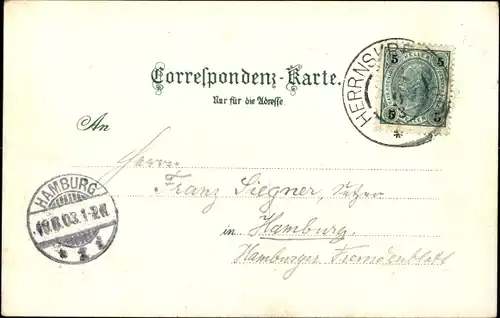 Correspondenz-Karte.
Nur für die Adresse
An
Herrn
Franz Siegner, Setzer
in Hamburg.
Hamburger Fremdenblatt
HERRNSKR
5 5
5 5
HAMBURG
19.8.03.1-2N
* 1